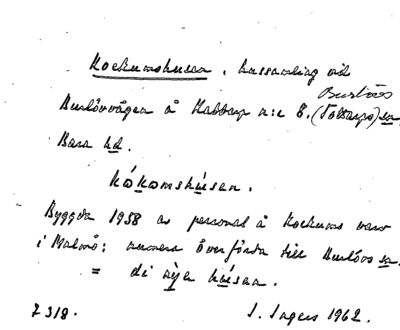 Kockumshusen, hussamling vid
Burlövs
Burlövvägen å Kabbarp n:r 8. (Tottarps) sn.
Bara hd.
kåkomshúsen.
Byggda 1958 av personal å Kockums varv
i Malmö; numera överförda till Burlövs sn.
= di nýe húsen.
7318. I. Ingers 1962.